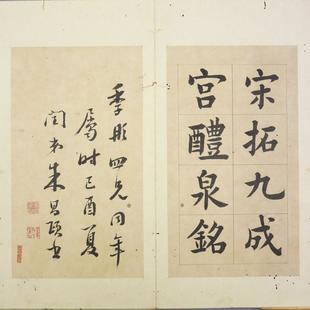 宋拓九成
宮醴泉銘
季彤四兄同年
屬時己酉夏
朱昌頤書